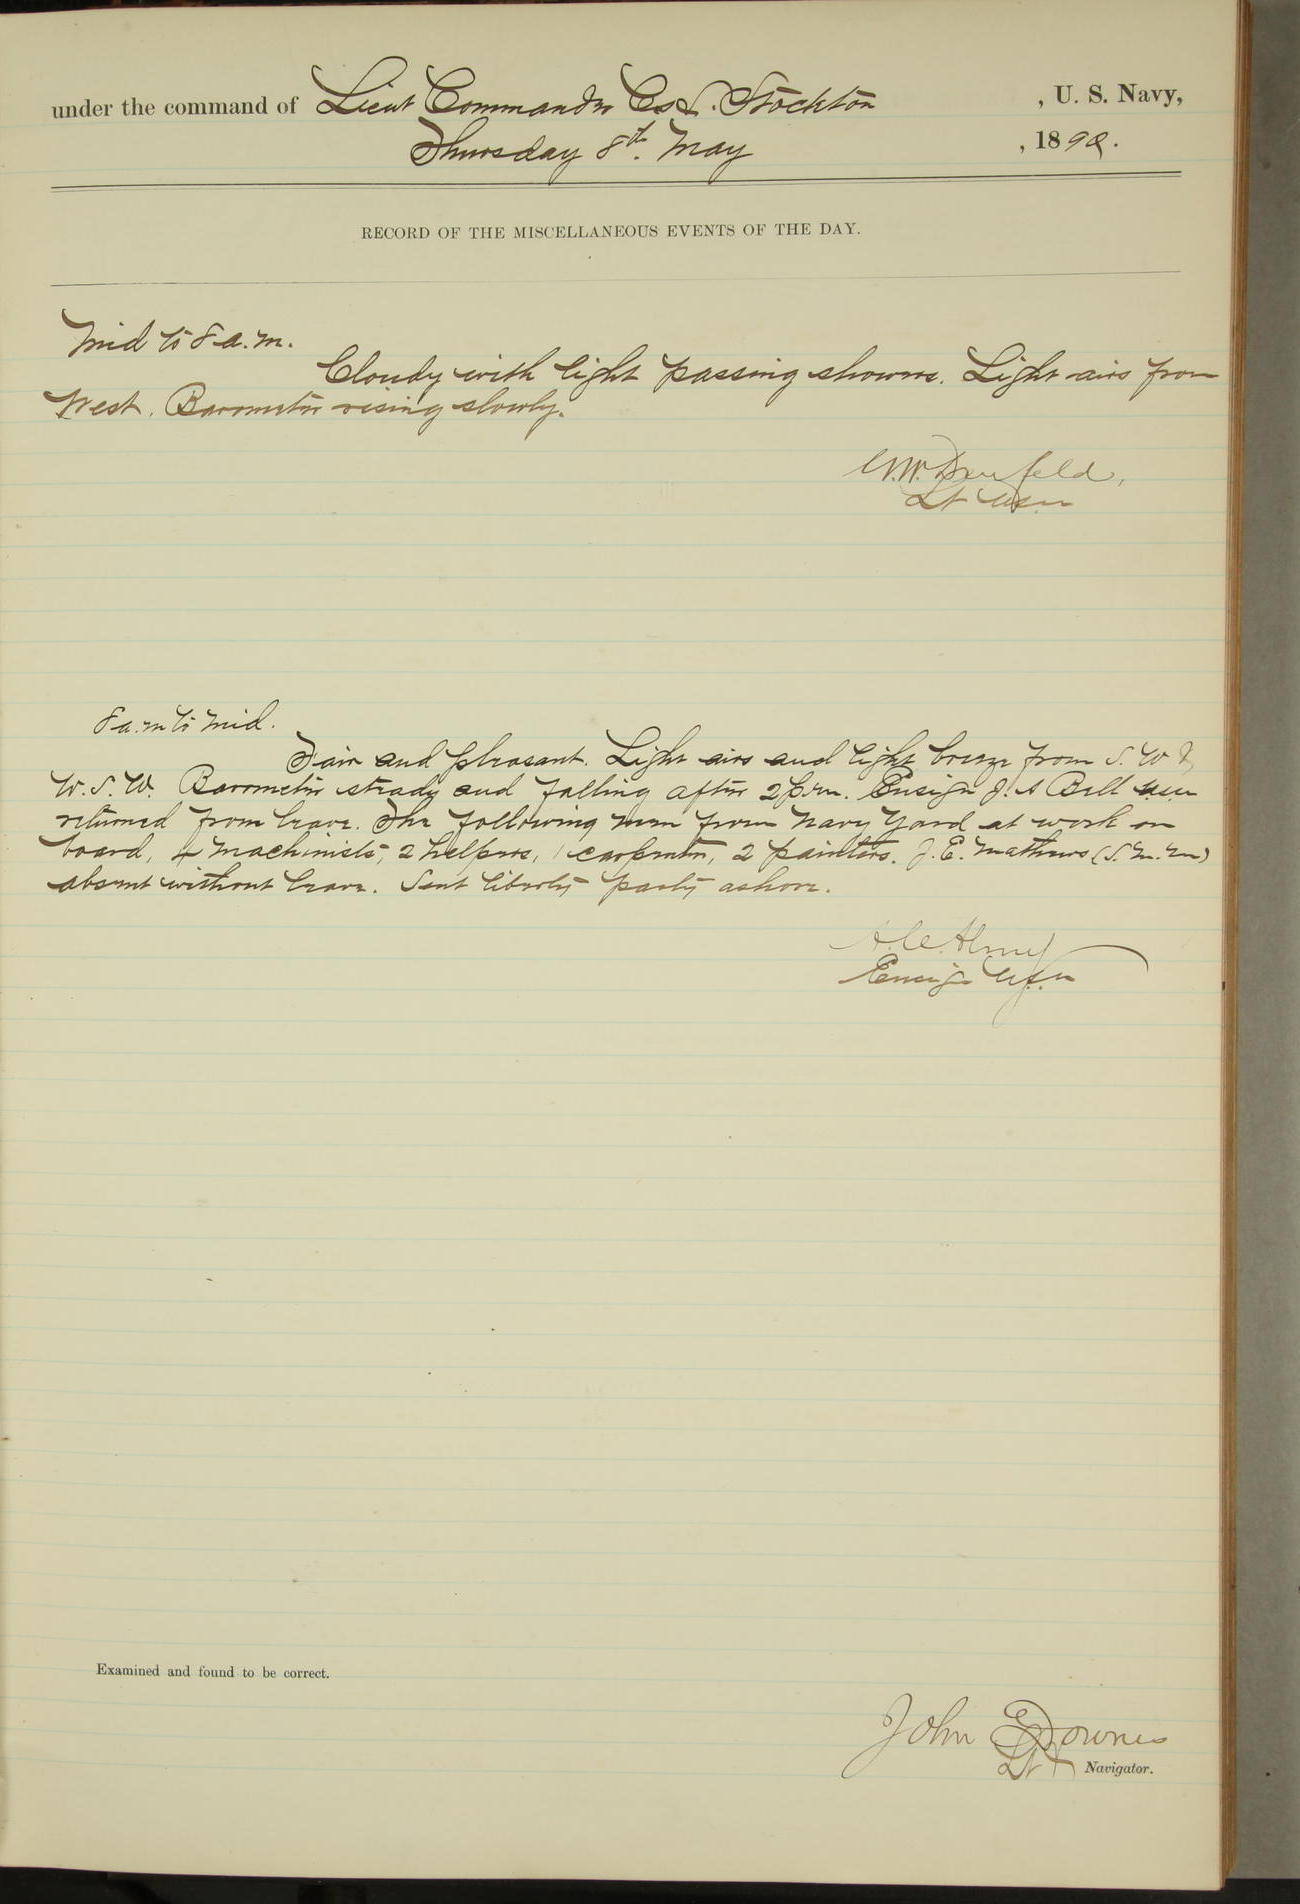 under the command of Lieut Commander C. H. Stockton, U. S. Navy,
Thursday 8th. May, 1890.
RECORD OF THE MISCELLANEOUS EVENTS OF THE DAY.
Mid to 8 a.m.
Cloudy with light passing showers. Light airs from
West. Barometer rising slowly.
Lt USN
8 a.m to Mid.
Fair and pleasant. Light airs and light breeze from S. W &
W. S. W. Barometer steady and falling after 2 p.m. Ensign J. A Bell USN
returned from leave. The following men from Navy Yard at work on
board, 4 machinists, 2 helpers, 1 carpenter, 2 painters. J. E. Mathews (S.M.M)
absent without leave. Sent liberty party ashore.
Ensign U.S.N
Examined and found to be correct.
John Downes
Lt Navigator.